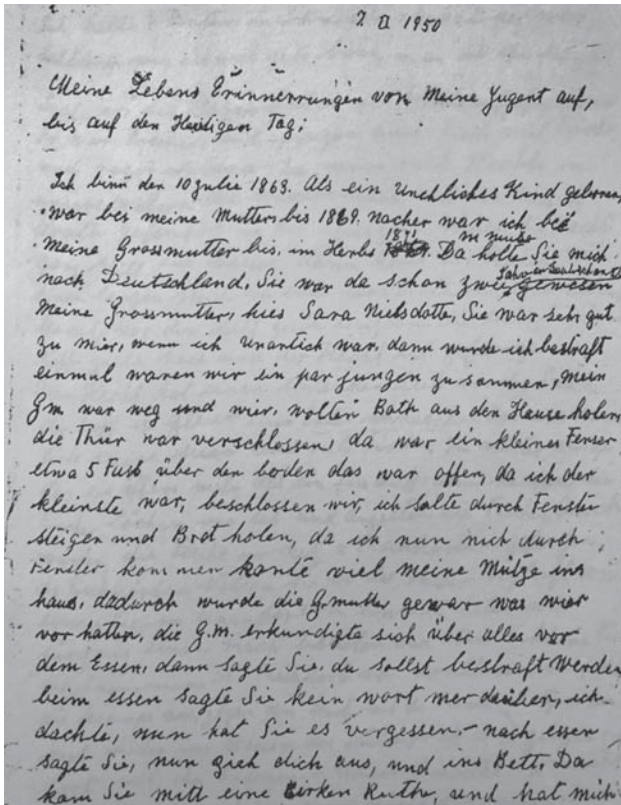 2 II 1950
Meine Lebens Erinnerrungen von Meine Jugent auf,
bis auf den Heutigen Tag;
Ich binn den 10 Julie 1863. Als ein Unehliches Kind geboren,
war bei meine Mutters bis 1869. nacher war ich bei
Meine Grossmutter bis, im Herbs 1871. Da holte Sie mich
nach Deutschland, Sie war da schon zwei gewesen
Meine Grossmutter, hies Sara Nielsdotte, Sie war sehr gut
zu mier, wenn ich Unartich war, dann wurde ich bestraft
einmal waren wir ein par jungen zu sammen, Mein
Gm war weg und wier, wolten Broth aus den Hause holen,
die Thür war verschlossen, da war ein kleines Fenser
etwa 5 Fuss über den boden das war offen, da ich der
kleinste war, beschlossen wir, ich solte durch Fenster
steigen und Brot holen, da ich nun nich durch
Fenster kommen konte viel meine Mütze ins
haus, dadurch wurde die G.mutter gewar was wier
vor hatten, die G.M. erkundigte sich über alles vor
dem Essen, dann sagte Sie, du sollst bestraft werden
beim essen sagte Sie kein wort mer darüber, ich
dachte, nun hat Sie es vergessen,- nach essen
sagte Sie, nun zieh dich aus, und ins Bett. Da
kam Sie mitt eine Birken Ruthe, und hat mich